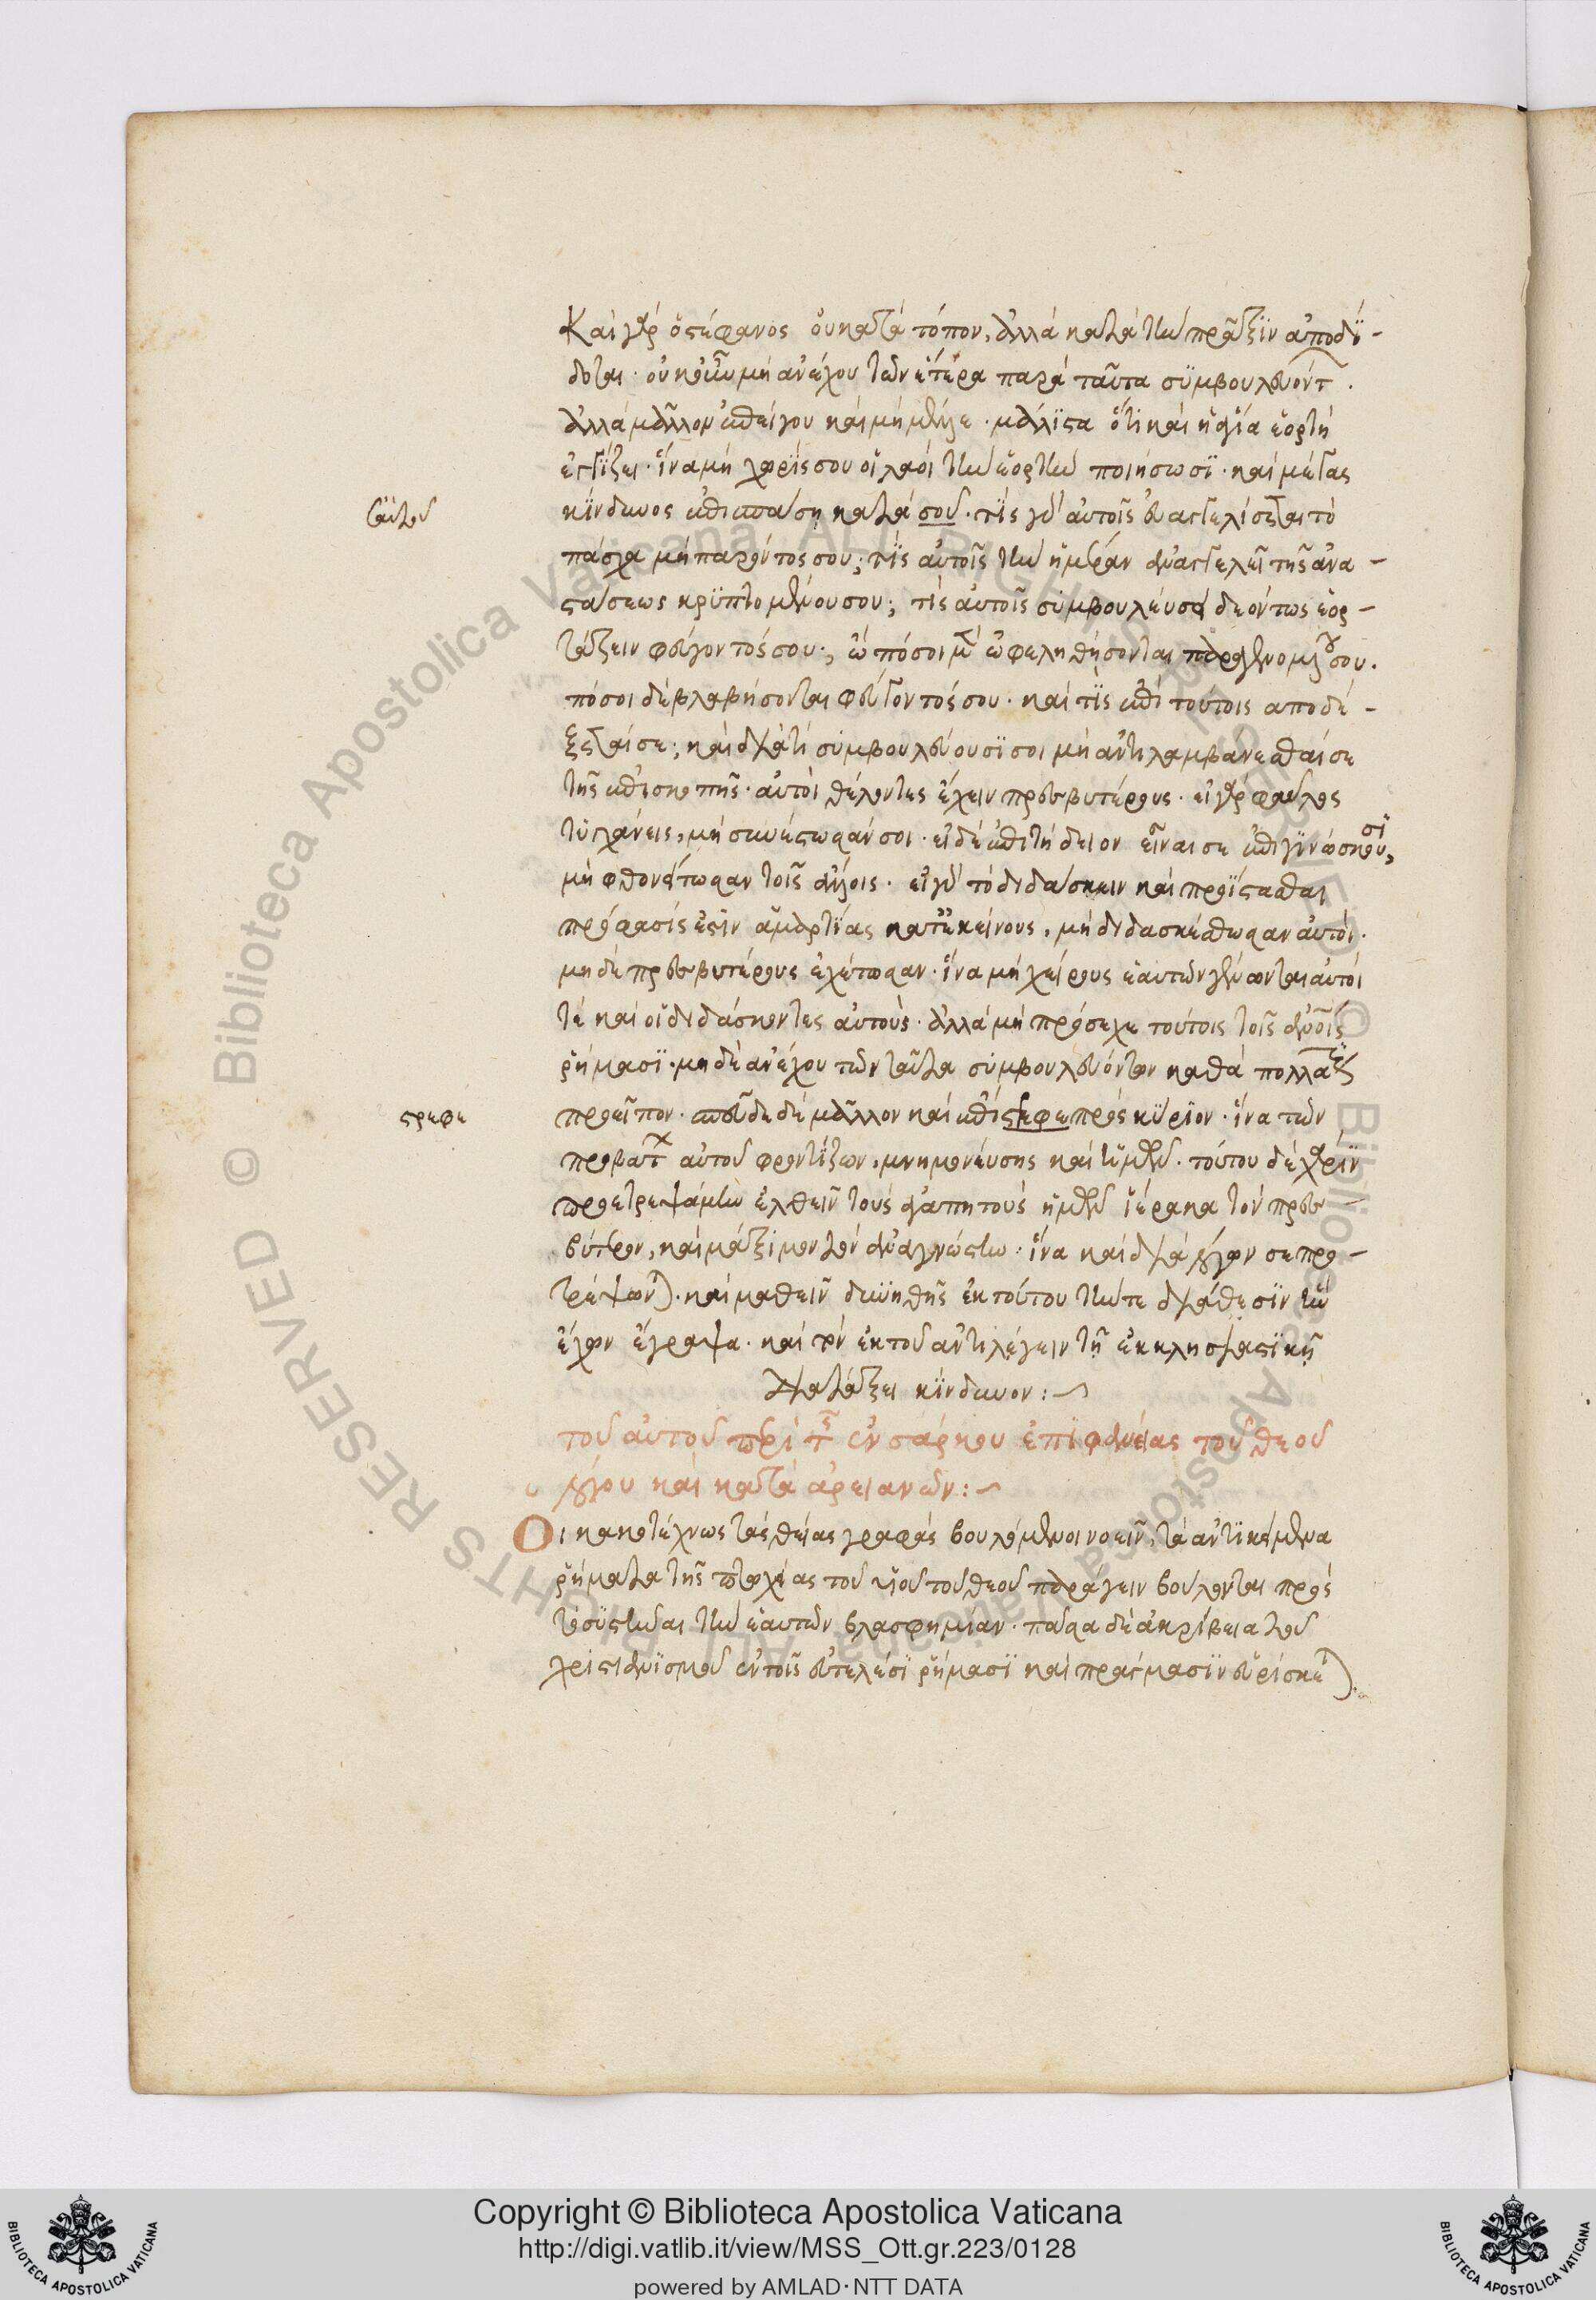 Καὶ γὰρ ὁ στέφανος οὐ κατὰ τόπον, ἀλλὰ κατὰ τὴν πρᾶξϊν ἀποδί-
δοται. οὐκοῦν μὴ ἀνέχου τῶν ἕτερα παρὰ ταῦτα συμβουλευόντ.
ἀλλὰ μᾶλλον ἐπείγου καὶ μὴ μέλλε. μάλιστα ὅτι καὶ ἡ ἁγία ἑορτὴ
ἐγγίζει. ἵνα μὴ χωρίς σου οἱ λαοὶ τὴν ἑορτὴν ποιήσωσϊ. καὶ μέγας
κίνδυνος ἐπισπάσῃ κατὰ σοῦ. τίς γὰρ αὐτοῖς εὐαγγελίσεται τὸ
σαυτοῦ
πάσχα μὴ παρόντος σου; τίς αὐτοῖς τὴν ἡμέραν ἀναγγελεῖ τῆς ἀνα-
στάσεως κρυπτομένου σου; τίς αὐτοῖς συμβουλεύσει δεόντως ἑορ-
τάζειν φεύγοντός σου; ὢ πόσοι μὲν ὠφεληθήσονται παραγενομένου σου.
πόσοι δὲ βλαβήσονται φεύγοντός σου. καὶ τίς ἐπὶ τούτοις ἀποδέ-
ξεταί σε; καὶ διατί συμβουλεύουσϊ σοι μὴ ἀντιλαμβάνεσθαί σε
τῆς ἐπισκοπῆς. αὐτοὶ θέλοντες ἔχειν πρεσβυτέρους. εἰ γὰρ φαῦλος
τυγχάνεις, μὴ συνέστωσάν σοι. εἰ δὲ ἐπιτήδειον εἶναί σε ἐπιγινώσκουσϊ,
μὴ φθονείτωσαν τοῖς ἄλλοις. εἰ γὰρ τὸ διδάσκειν καὶ προΐστασθαι
πρόφασίς ἐστιν ἁμαρτίας κατ ἐκείνους, μὴ διδασκέσθωσαν αὐτοὶ.
μηδὲ πρεσβυτέρους ἐχέτωσαν. ἵνα μὴ χείρους ἑαυτῶν γένωνται αὐτοί
τε καὶ οἱ διδάσκοντες αὐτούς. ἀλλὰ μὴ πρόσεχε τούτοις τοῖς ἀνοις
ῥήμασϊ. μηδὲ ἀνέχου τῶν ταῦτα συμβουλευόντων καθὰ πολλακις
προεῖπον. σπεῦδε δὲ μᾶλλον καὶ ἐπίστρεφε πρὸς κύριον. ἵνα τῶν
στρεφε
προβάτ αὐτοῦ φροντίζων, μνημονεύσῃς καὶ ἡμῶν. τούτου δὲ χάριν
προετρεψάμην ἐλθεῖν τοὺς ἀγαπητοὺς ἡμῶν ἱέρακα τὸν πρεσ-
βύτερον, καὶ μάξιμον τὸν ἀναγνώστην. ἵνα καὶ διὰ λόγων σε προ-
τρέψωνται. καὶ μαθεῖν δυνηθῇς ἐκ τούτου τήν τε διάθεσιν ἣν
ἔχων ἔγραψα. καὶ τὸν ἐκ τοῦ ἀντιλέγειν τῇ ἐκκλησιαστϊκῇ
διατάξει κίνδυνον:
τοῦ αὐτοῦ περὶ τῆς ἐνσάρκου ἐπϊφανείας τοῦ θεοῦ
λόγου καὶ κατὰ ἀρειανῶν:
Οἱ κακοτέχνως τὰς θείας γραφὰς βουλόμενοι νοεῖν, τὰ ἀντϊκείμενα
ῥήματα τῆς πτωχείας τοῦ υἱοῦ τοῦ θεοῦ παράγειν βούλονται πρὸς
τὸ συστῆσαι τὴν ἑαυτῶν βλασφημίαν. πᾶσα δὲ ἀκρίβεια τοῦ
χριστιανϊσμοῦ ἐν τοῖς εὐτελέσϊ ῥήμασϊ καὶ πράγμασϊν εὑρίσκεται.
Copyright © Biblioteca Apostolica Vaticana
http://digi.vatlib.it/view/MSS_Ott.gr.223/0128
powered by AMLAD·NTT DATA